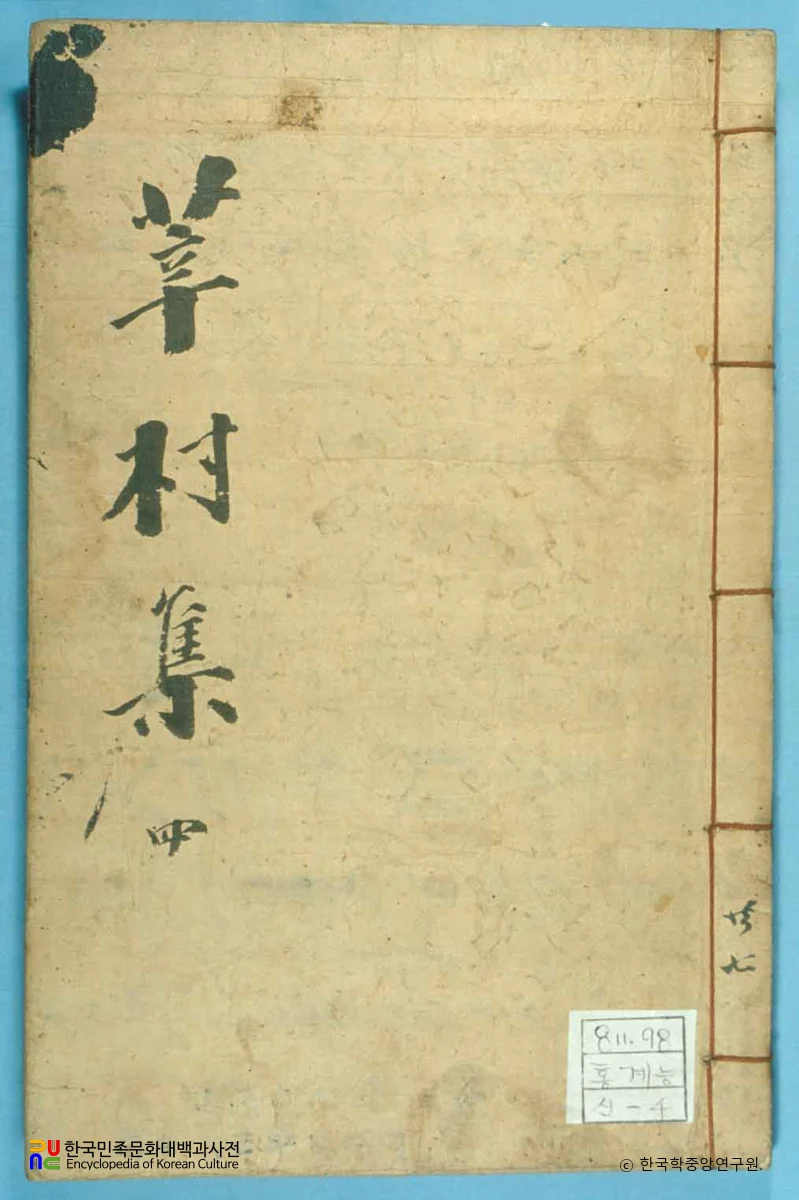 莘村集
四
共七
811.98
홍계능
신-4
한국민족문화대백과사전
Encyclopedia of Korean Culture
© 한국학중앙연구원.